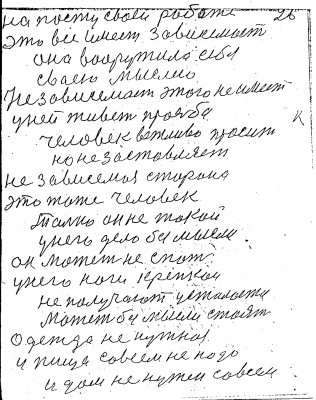 на посту своей работе 26
это всё имеет зависемост
она вооружила себя
сваею мыслию
Независемаст этого не имеет
у ней живет прозба
человек вежливо просит
но не заставляет
не зависемоя сторона
это тоже человек
Толко он не такой
у него дело бы мыслы
он может не спат
у него ноги крепкои
не получают усталости
может бы мыслы стоят
одежда не нужна
и пища совсем не надо
и дом не нужен совсем